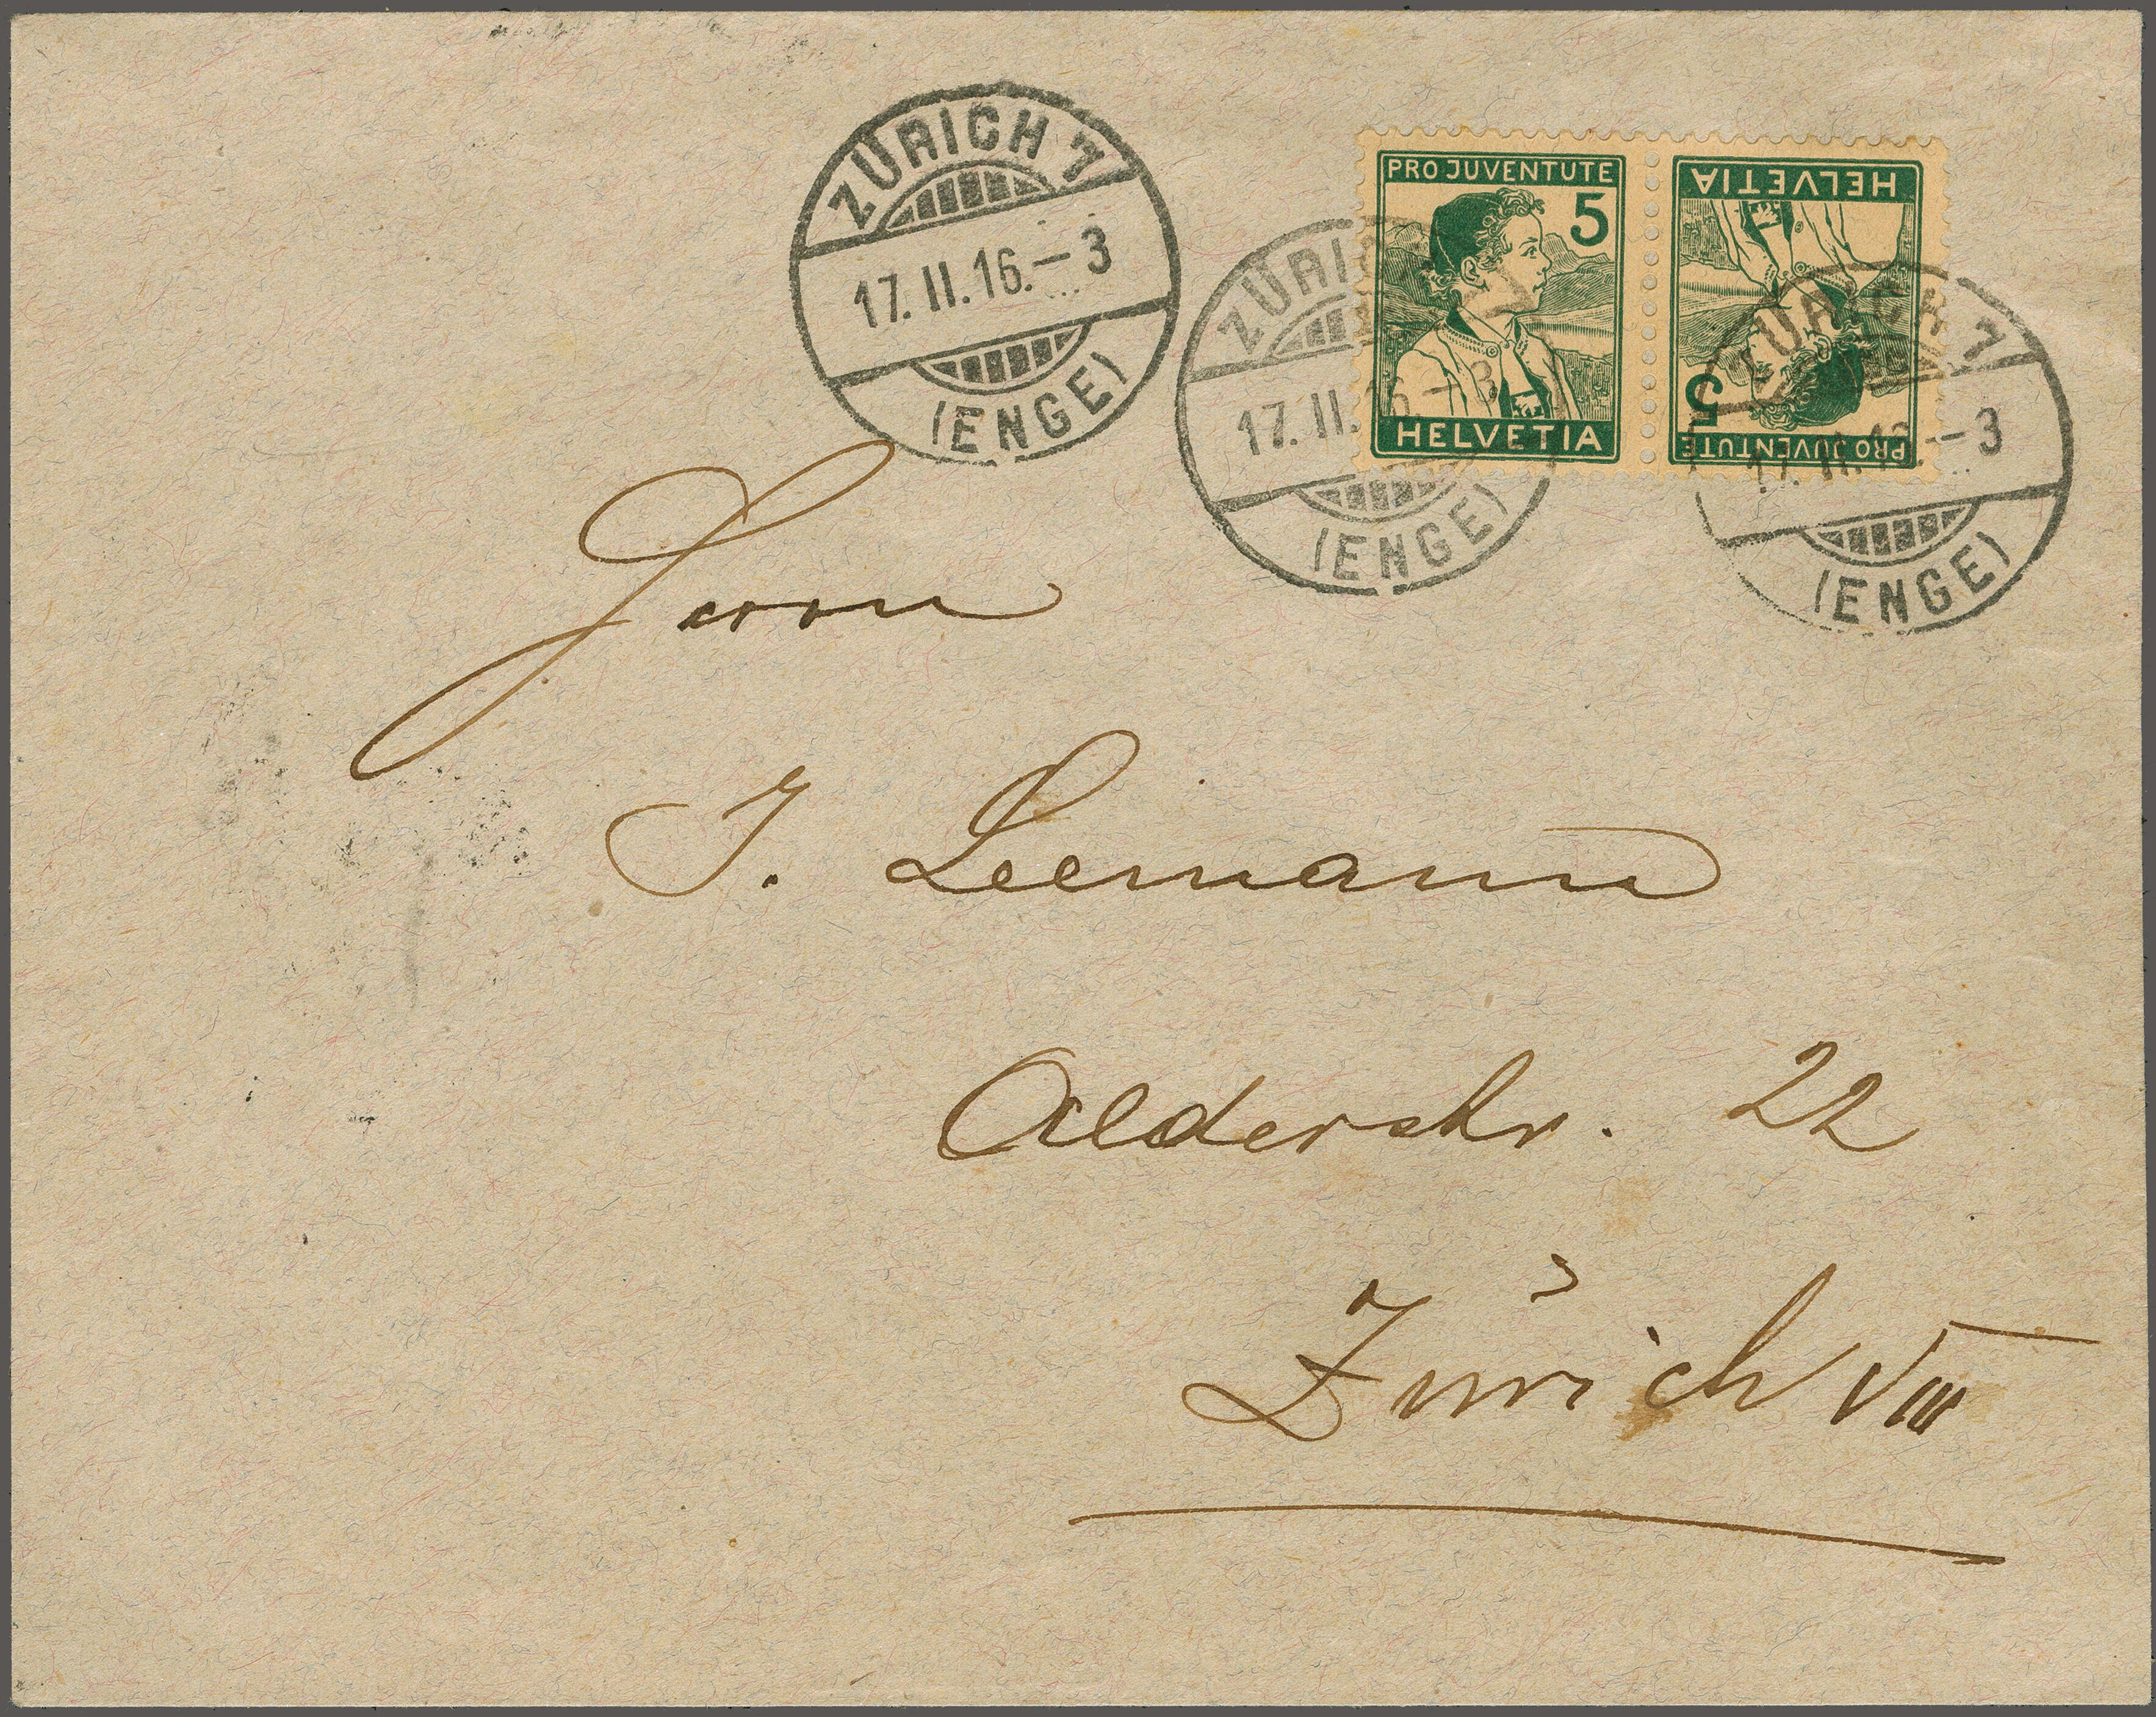 ZÜRICH 7
17.II.16.–3
(ENGE)
PRO JUVENTUTE
5
HELVETIA
HELVETIA
5
PRO JUVENTUTE
ZÜRI
17.II.16.–3
(ENGE)
ZÜRICH 7
17.II.16.–3
(ENGE)
Herrn
J. Leemann
Alderstr. 22
Zürich VIII